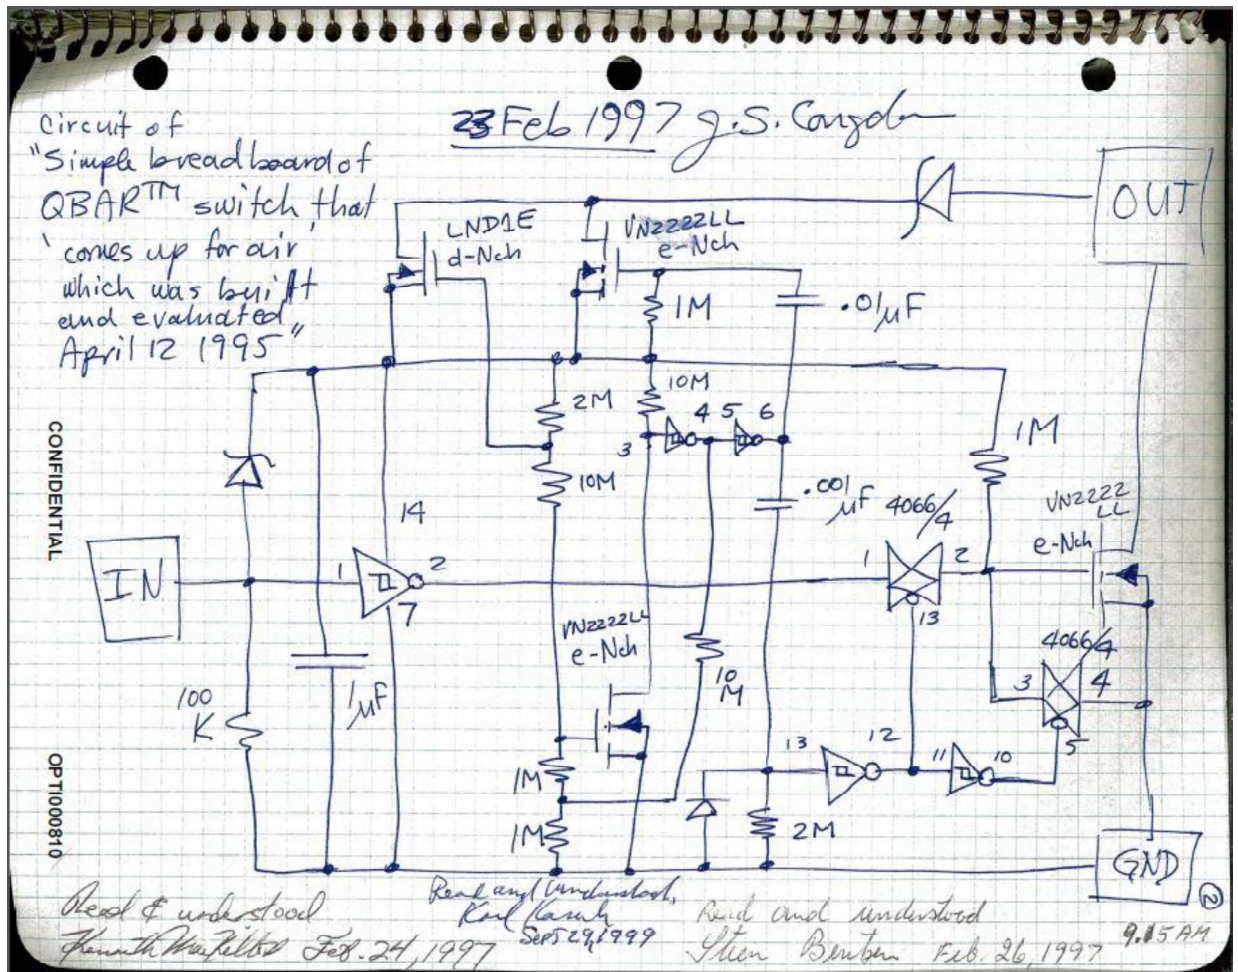 23 Feb 1997 J.S. Congdon
Circuit of
"Simple breadboard of
QBAR™ switch that
'comes up for air'
which was built
and evaluated
April 12 1995"
OUT
LND1E
d-Nch
VN2222LL
e-Nch
1M
.01µF
2M
10M
3
4
5
6
10M
1M
.001
µF
4066/4
VN2222
LL
e-Nch
14
IN
1
2
7
1
2
13
VN2222LL
e-Nch
4066/4
3
4
5
100
K
1µF
10
M
13
12
11
10
1M
1M
2M
GND
2
CONFIDENTIAL
OPTI000810
Read & understood
Feb. 24, 1997
Read and Understood,
Karl
Sept 29, 1999
Read and understood
Feb. 26, 1997
9:15 AM